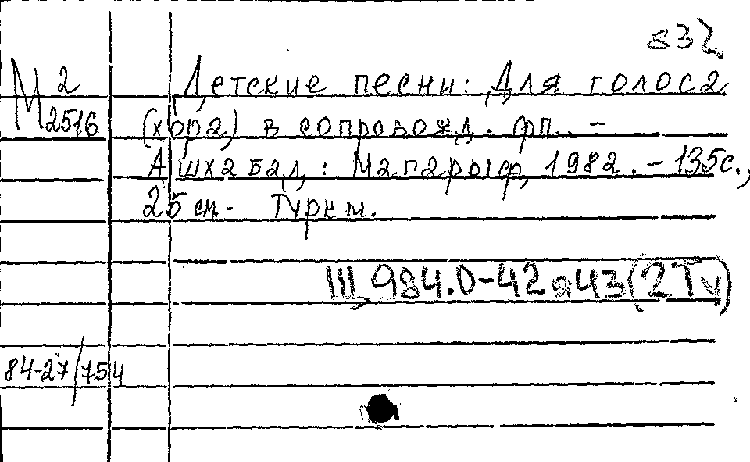 832
М 2
2516
Детские песни: Для голоса
(хора) в сопровожд. фп. -
Ашхабад,: Магарыф, 1982. - 135с.,
25 см- Туркм.
Ш 984.0-42я43(2Ту)
84-27/754